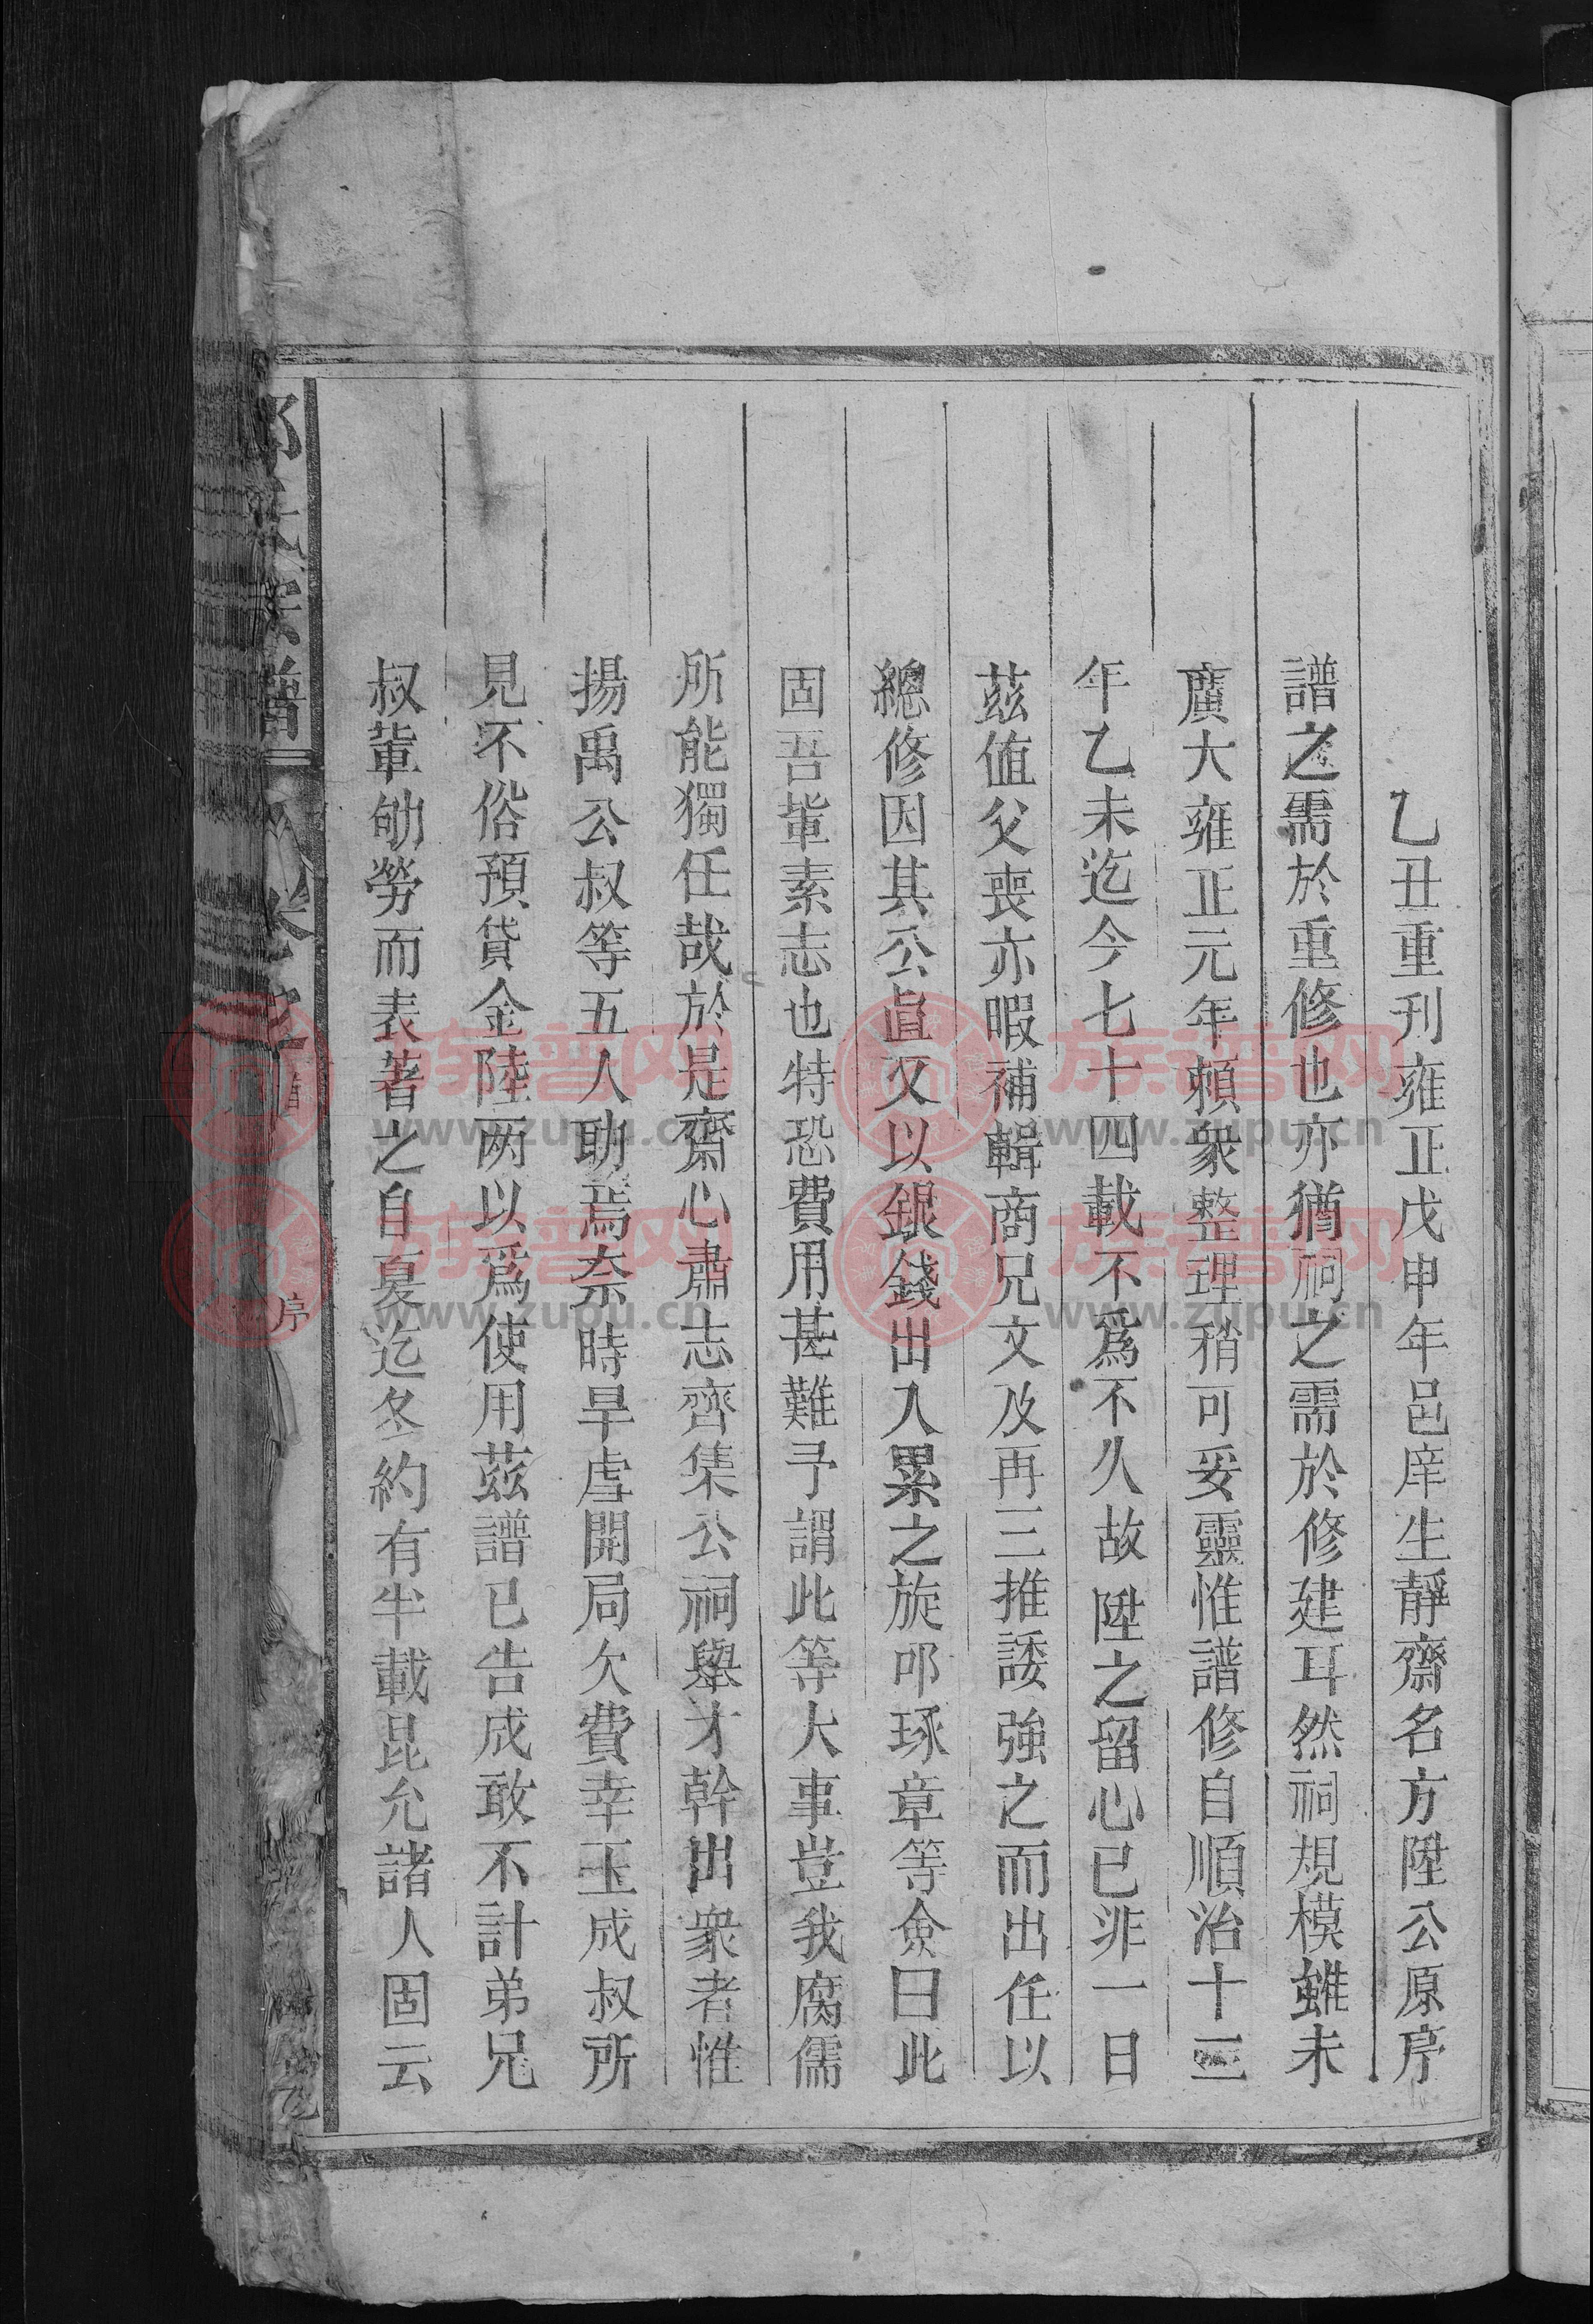 乙丑重刊雍正戊申年邑庠生靜齋名方陞公原序
譜之需於重修也亦猶祠之需於修建耳然祠規模雖未
廣大雍正元年頼衆整理稍可妥靈惟譜修自順治十二
年乙未迄今七十四載不爲不久故陞之留心已非一日
茲值父喪亦暇補輯商兄文及再三推諉強之而出任以
總修因其公直又以銀錢出入累之旋叩琢章等僉曰此
固吾輩素志也特恐費用甚難予謂此等大事豈我腐儒
所能獨任哉於是齋心肅志齊集公祠舉才幹出衆者惟
揚禹公叔等五人助焉奈時旱虐開局欠費幸玉成叔所
見不俗預貸金陸两以爲使用茲譜已告成敢不計弟兄
叔輩劬勞而表著之自夏迄冬約有半載昆允諸人固云
氏宗譜
卷之首
序
族譜网
www.zupu.cn
族譜网
www.zupu.cn
族譜网
www.zupu.cn
族譜网
www.zupu.cn